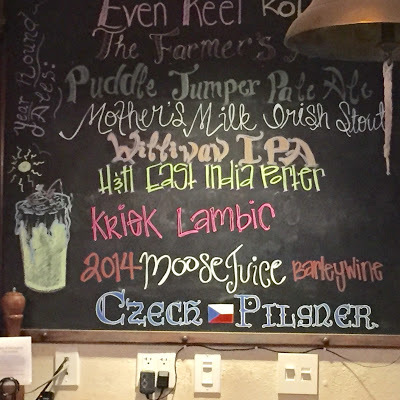 Year Round
Ales:
Even Keel Kol
The Farmer's
Puddle Jumper Pale Ale
Mother's Milk Irish Stout
IPA
East India Porter
Kriek Lambic
2014 Moose Juice Barleywine
Czech Pilsner